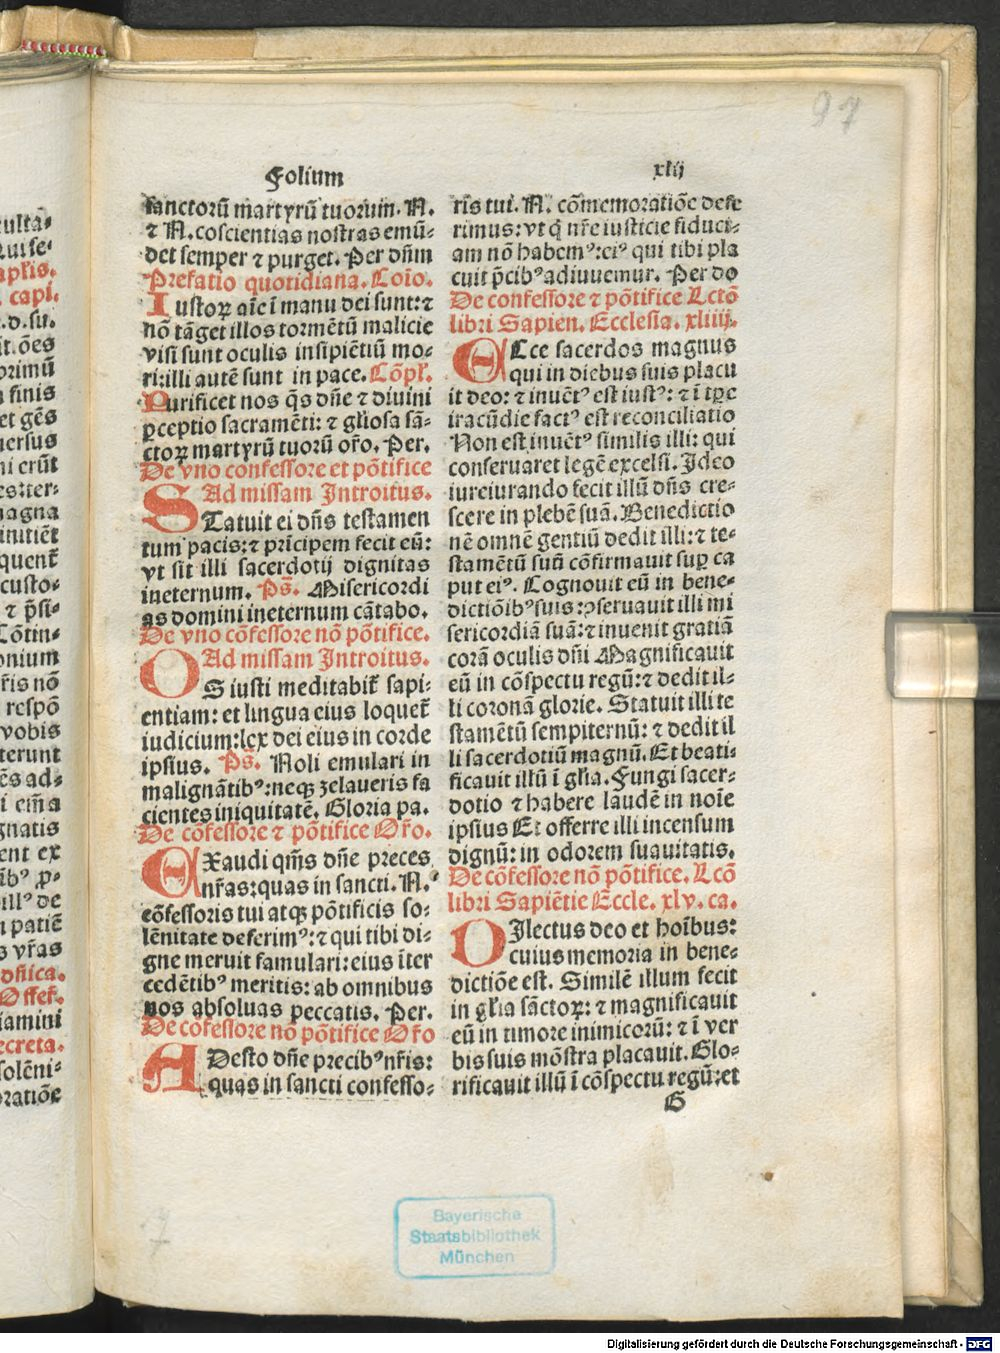 97
Folium xlij
sanctorū martyrū tuorum. N.
⁊ N. cōscientias nostras emū⸗
det semper ⁊ purget. Per dn̄m
Prefatio quotidiana. Cōio.
Iustoꝝ aīe ī manu dei sunt: ⁊
nō tāget illos tormētū malicie
visi sunt oculis insipiētiū mo⸗
ri: illi autē sunt in pace. Cōpl̄.
Purificet nos q̄s dn̄e ⁊ diuini
ꝑceptio sacramēti: ⁊ gl̄iosa sā⸗
ctoꝝ martyrū tuorū or̄o. Per.
De vno confessore et pōtifice
Ad missam Introitus.
STatuit ei dn̄s testamen
tum pacis: ⁊ prīcipem fecit eū:
vt sit illi sacerdotij dignitas
ineternum. Ps̄. Misericordi
as domini ineternum cātabo.
De vno cōfessore nō pōtifice.
Ad missam Introitus.
OS iusti meditabit̄ sapi⸗
entiam: et lingua eius loquet̄
iudicium: lex dei eius in corde
ipsius. Ps̄. Noli emulari in
malignātibꝰ: neqꝫ zelaueris fa
cientes iniquitatē. Gloria pa.
De cōfessore ⁊ pōtifice Or̄o.
EXaudi qm̄s dn̄e preces
nr̄as: quas in sancti. N.
cōfessoris tui atqꝫ pōtificis so⸗
lēnitate deferimꝰ: ⁊ qui tibi di⸗
gne meruit famulari: eius īter
cedētibꝰ meritis: ab omnibus
nos absoluas peccatis. Per.
De cōfessore nō pōtifice Or̄o
ADesto dn̄e precibꝰ nr̄is:
quas in sancti confesso⸗
ris tui. N. cōmemoratiōe defe
rimus: vt q̄ nr̄e iusticie fiduci⸗
am nō habemꝰ: eiꝰ qui tibi pla
cuit p̄cibꝰ adiuuemur. Per do
De confessore ⁊ pōtifice Lctō
libri Sapien. Ecclesia. xliiij.
ECce sacerdos magnus
qui in diebus suis placu
it deo: ⁊ inuētꝰ est iustꝰ: ⁊ ī tꝑe
iracūdie factꝰ est reconciliatio
Non est inuētꝰ similis illi: qui
conseruaret legē excelsi. Ideo
iureiurando fecit illū dn̄s cre⸗
scere in plebē suā. Benedictio
nē omnē gentiū dedit illi: ⁊ te⸗
stamētū suū cōfirmauit suꝑ ca
put eiꝰ. Cognouit eū in bene⸗
dictiōibꝰ suis: ꝯseruauit illi mi
sericordiā suā: ⁊ inuenit gratiā
corā oculis dn̄i Magnificauit
eū in cōspectu regū: ⁊ dedit il⸗
li coronā glorie. Statuit illi te
stamētū sempiternū: ⁊ dedit il
li sacerdotiū magnū. Et beati⸗
ficauit illū ī gl̄ia. Fungi sacer⸗
dotio ⁊ habere laudē in noīe
ipsius Et offerre illi incensum
dignū: in odorem suauitatis.
De cōfessore nō pōtifice. Lcō
libri Sapiētie Eccle. xlv. ca.
DIlectus deo et hoībus:
cuius memoria in bene⸗
dictiōe est. Similē illum fecit
in gl̄ia sāctoꝝ: ⁊ magnificauit
eū in timore inimicorū: ⁊ ī ver
bis suis mōstra placauit. Glo⸗
rificauit illū ī cōspectu regū: et
G
Bayerische
Staatsbibliothek
München
Digitalisierung gefördert durch die Deutsche Forschungsgemeinschaft - DFG